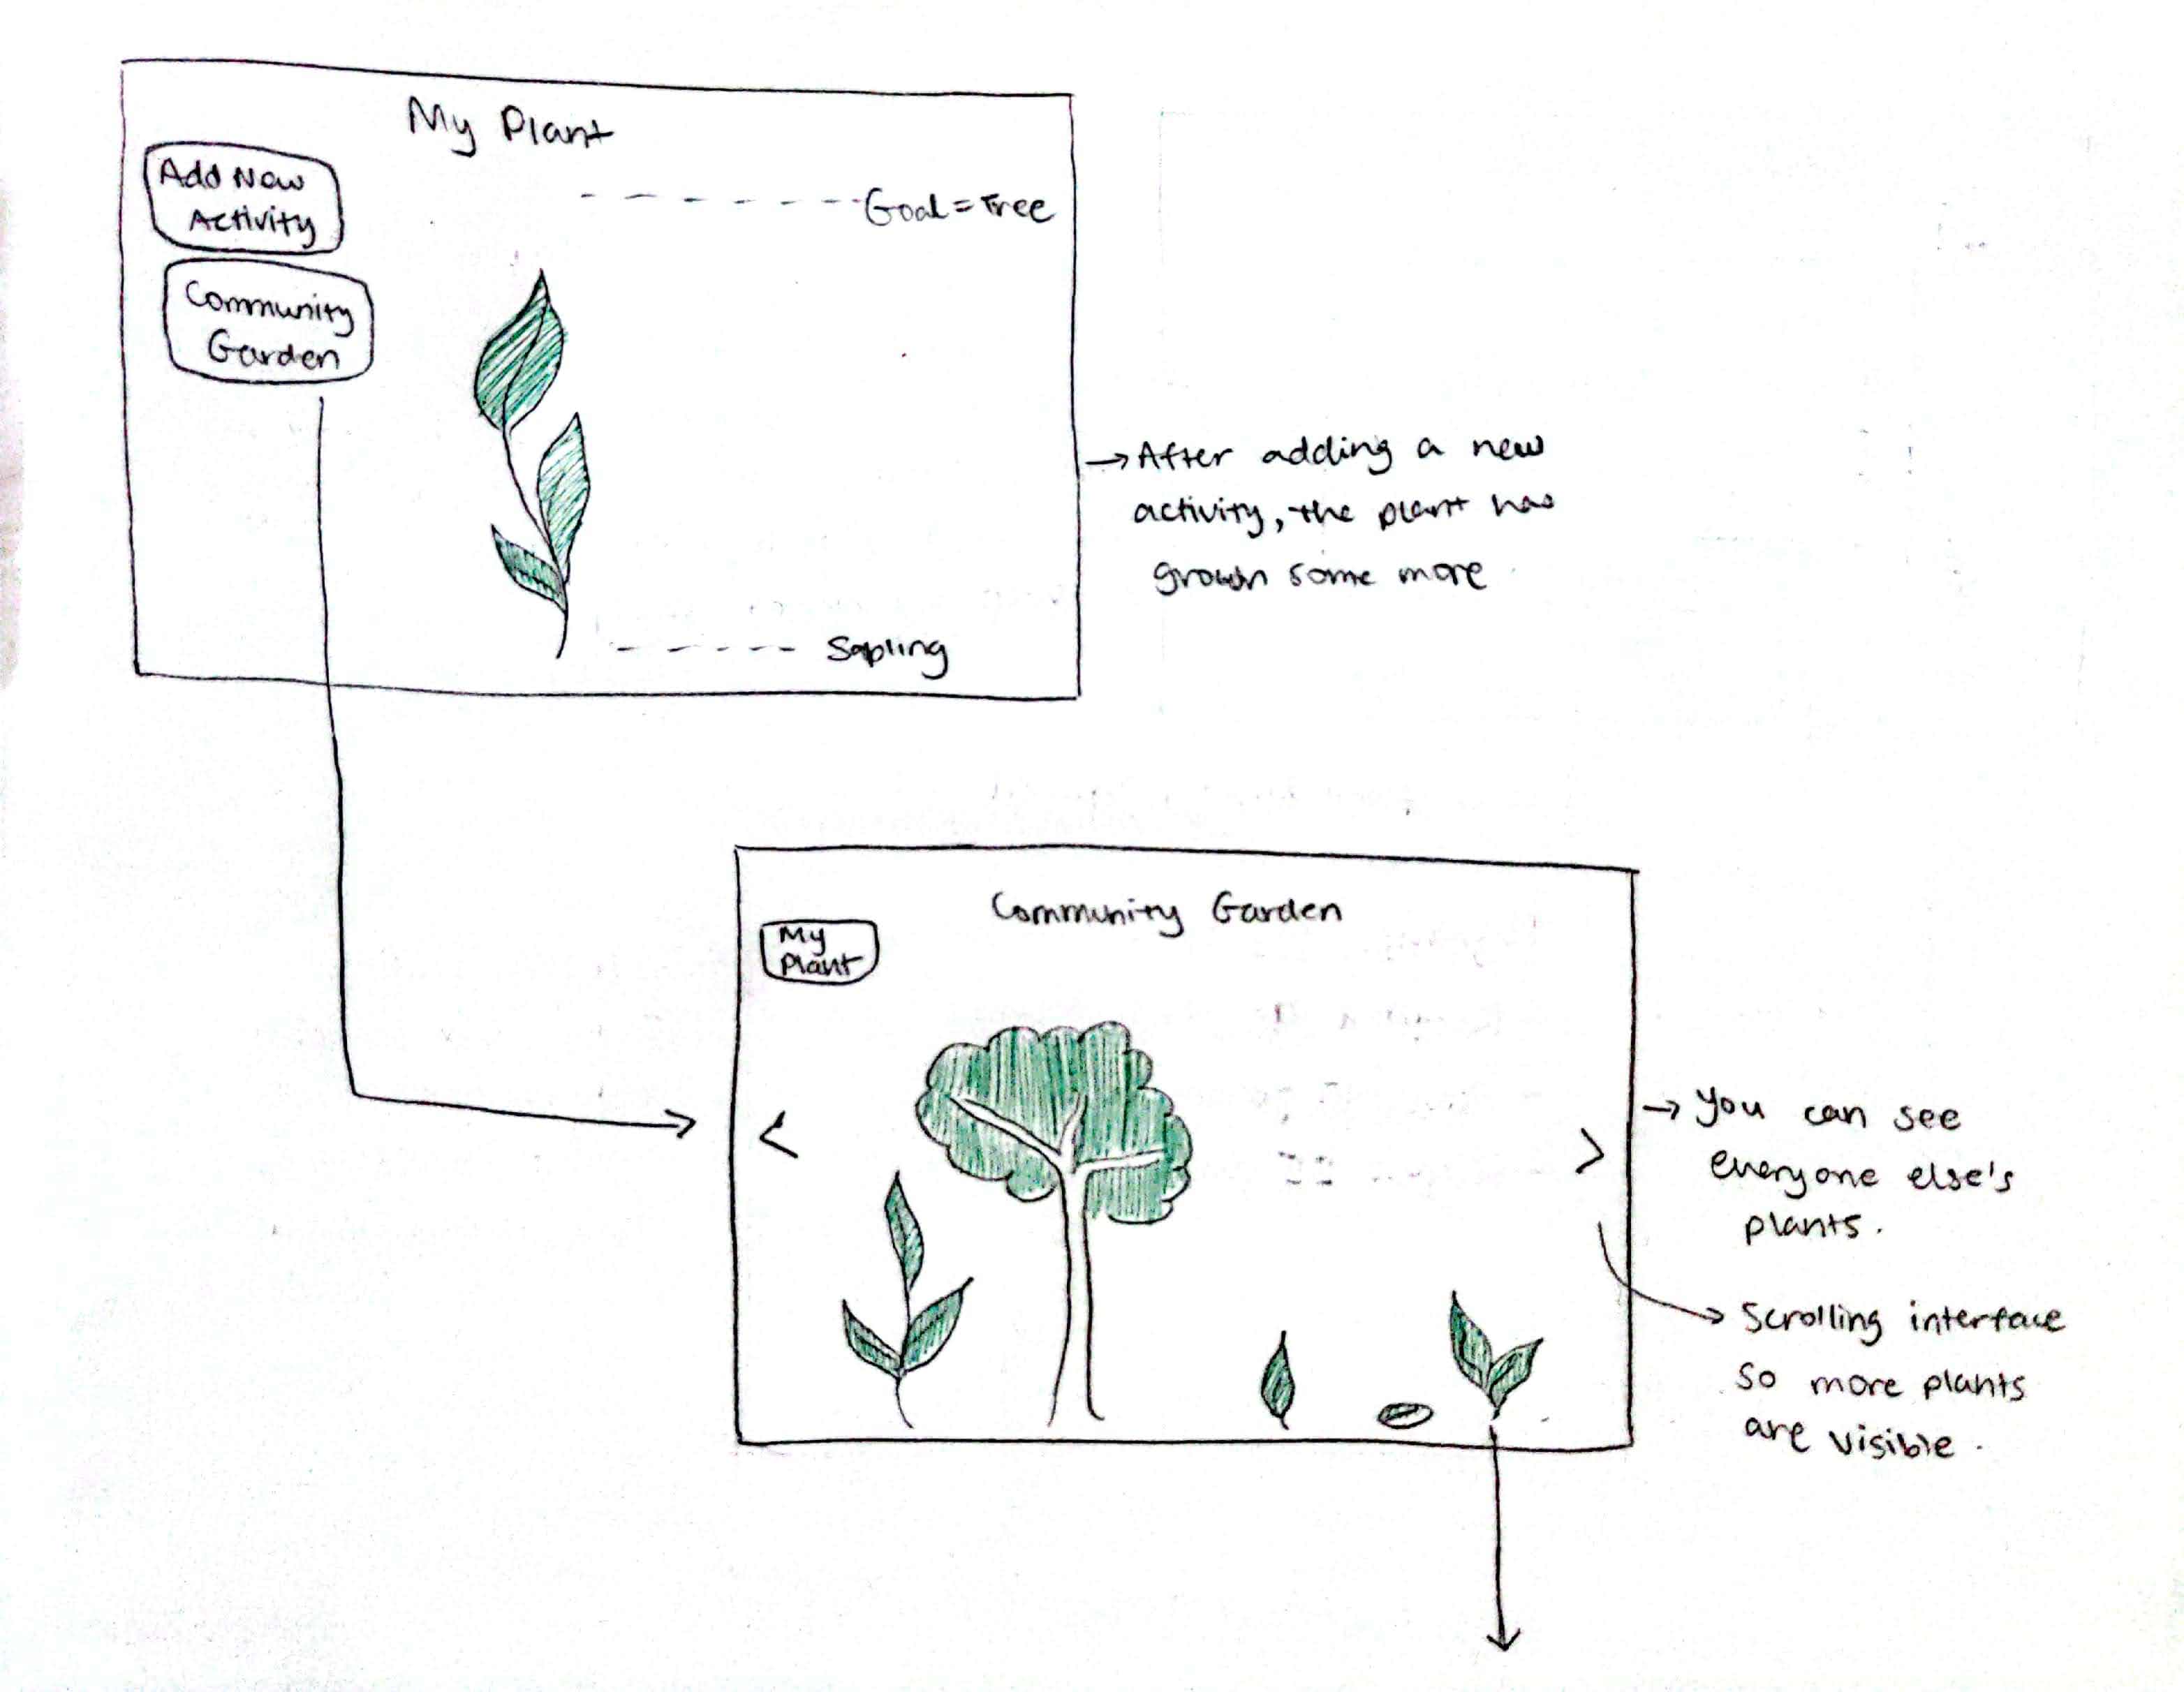 My Plant
Add New
Activity
Goal = Tree
Community
Garden
→ After adding a new
activity, the plant has
grown some more
Sapling
Community Garden
My
Plant
<
>
→ You can see
everyone else's
plants.
Scrolling interface
so more plants
are visible.